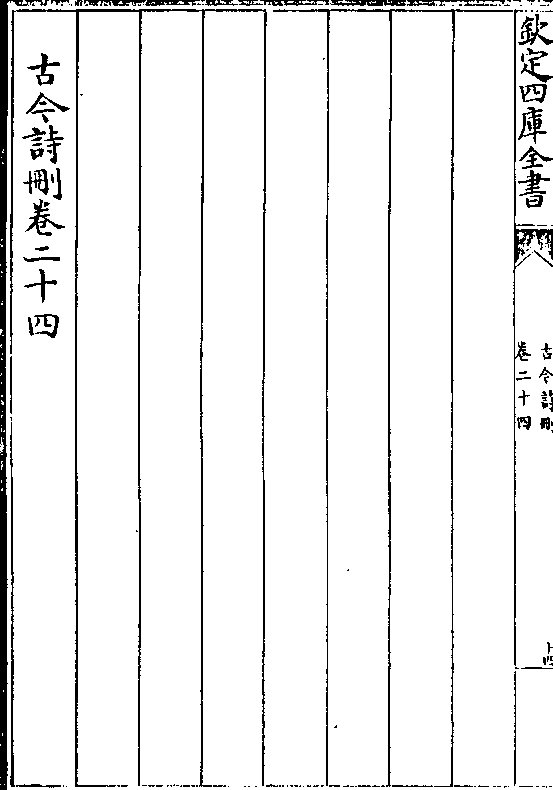 欽定四庫全書
古今詩刪
卷二十四
十四
古今詩刪卷二十四